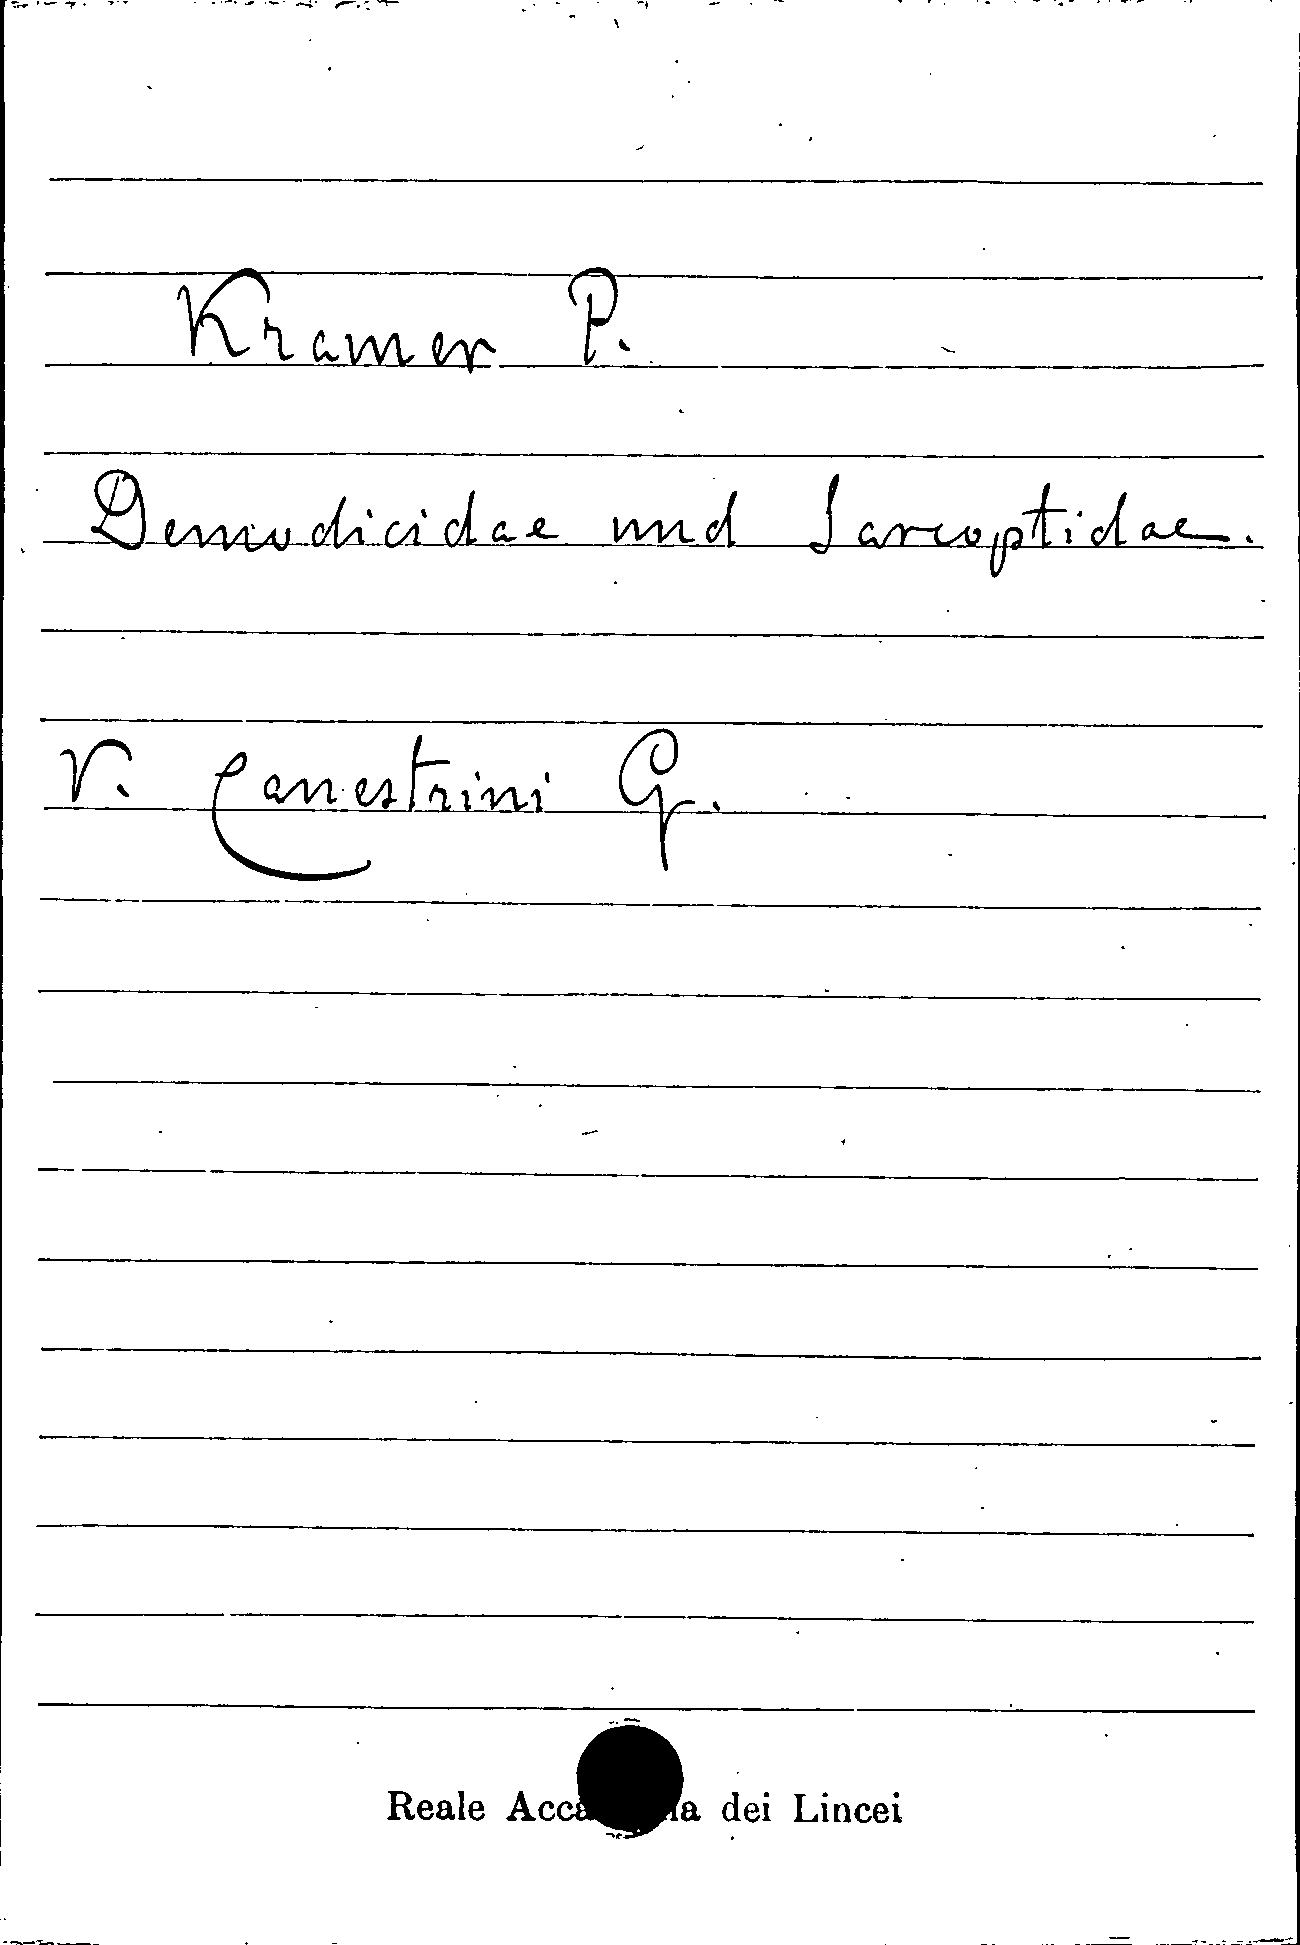 Kramer P.
Demodicidae und Sarcoptidae.
V. Canestrini G.
Reale Accademia dei Lincei